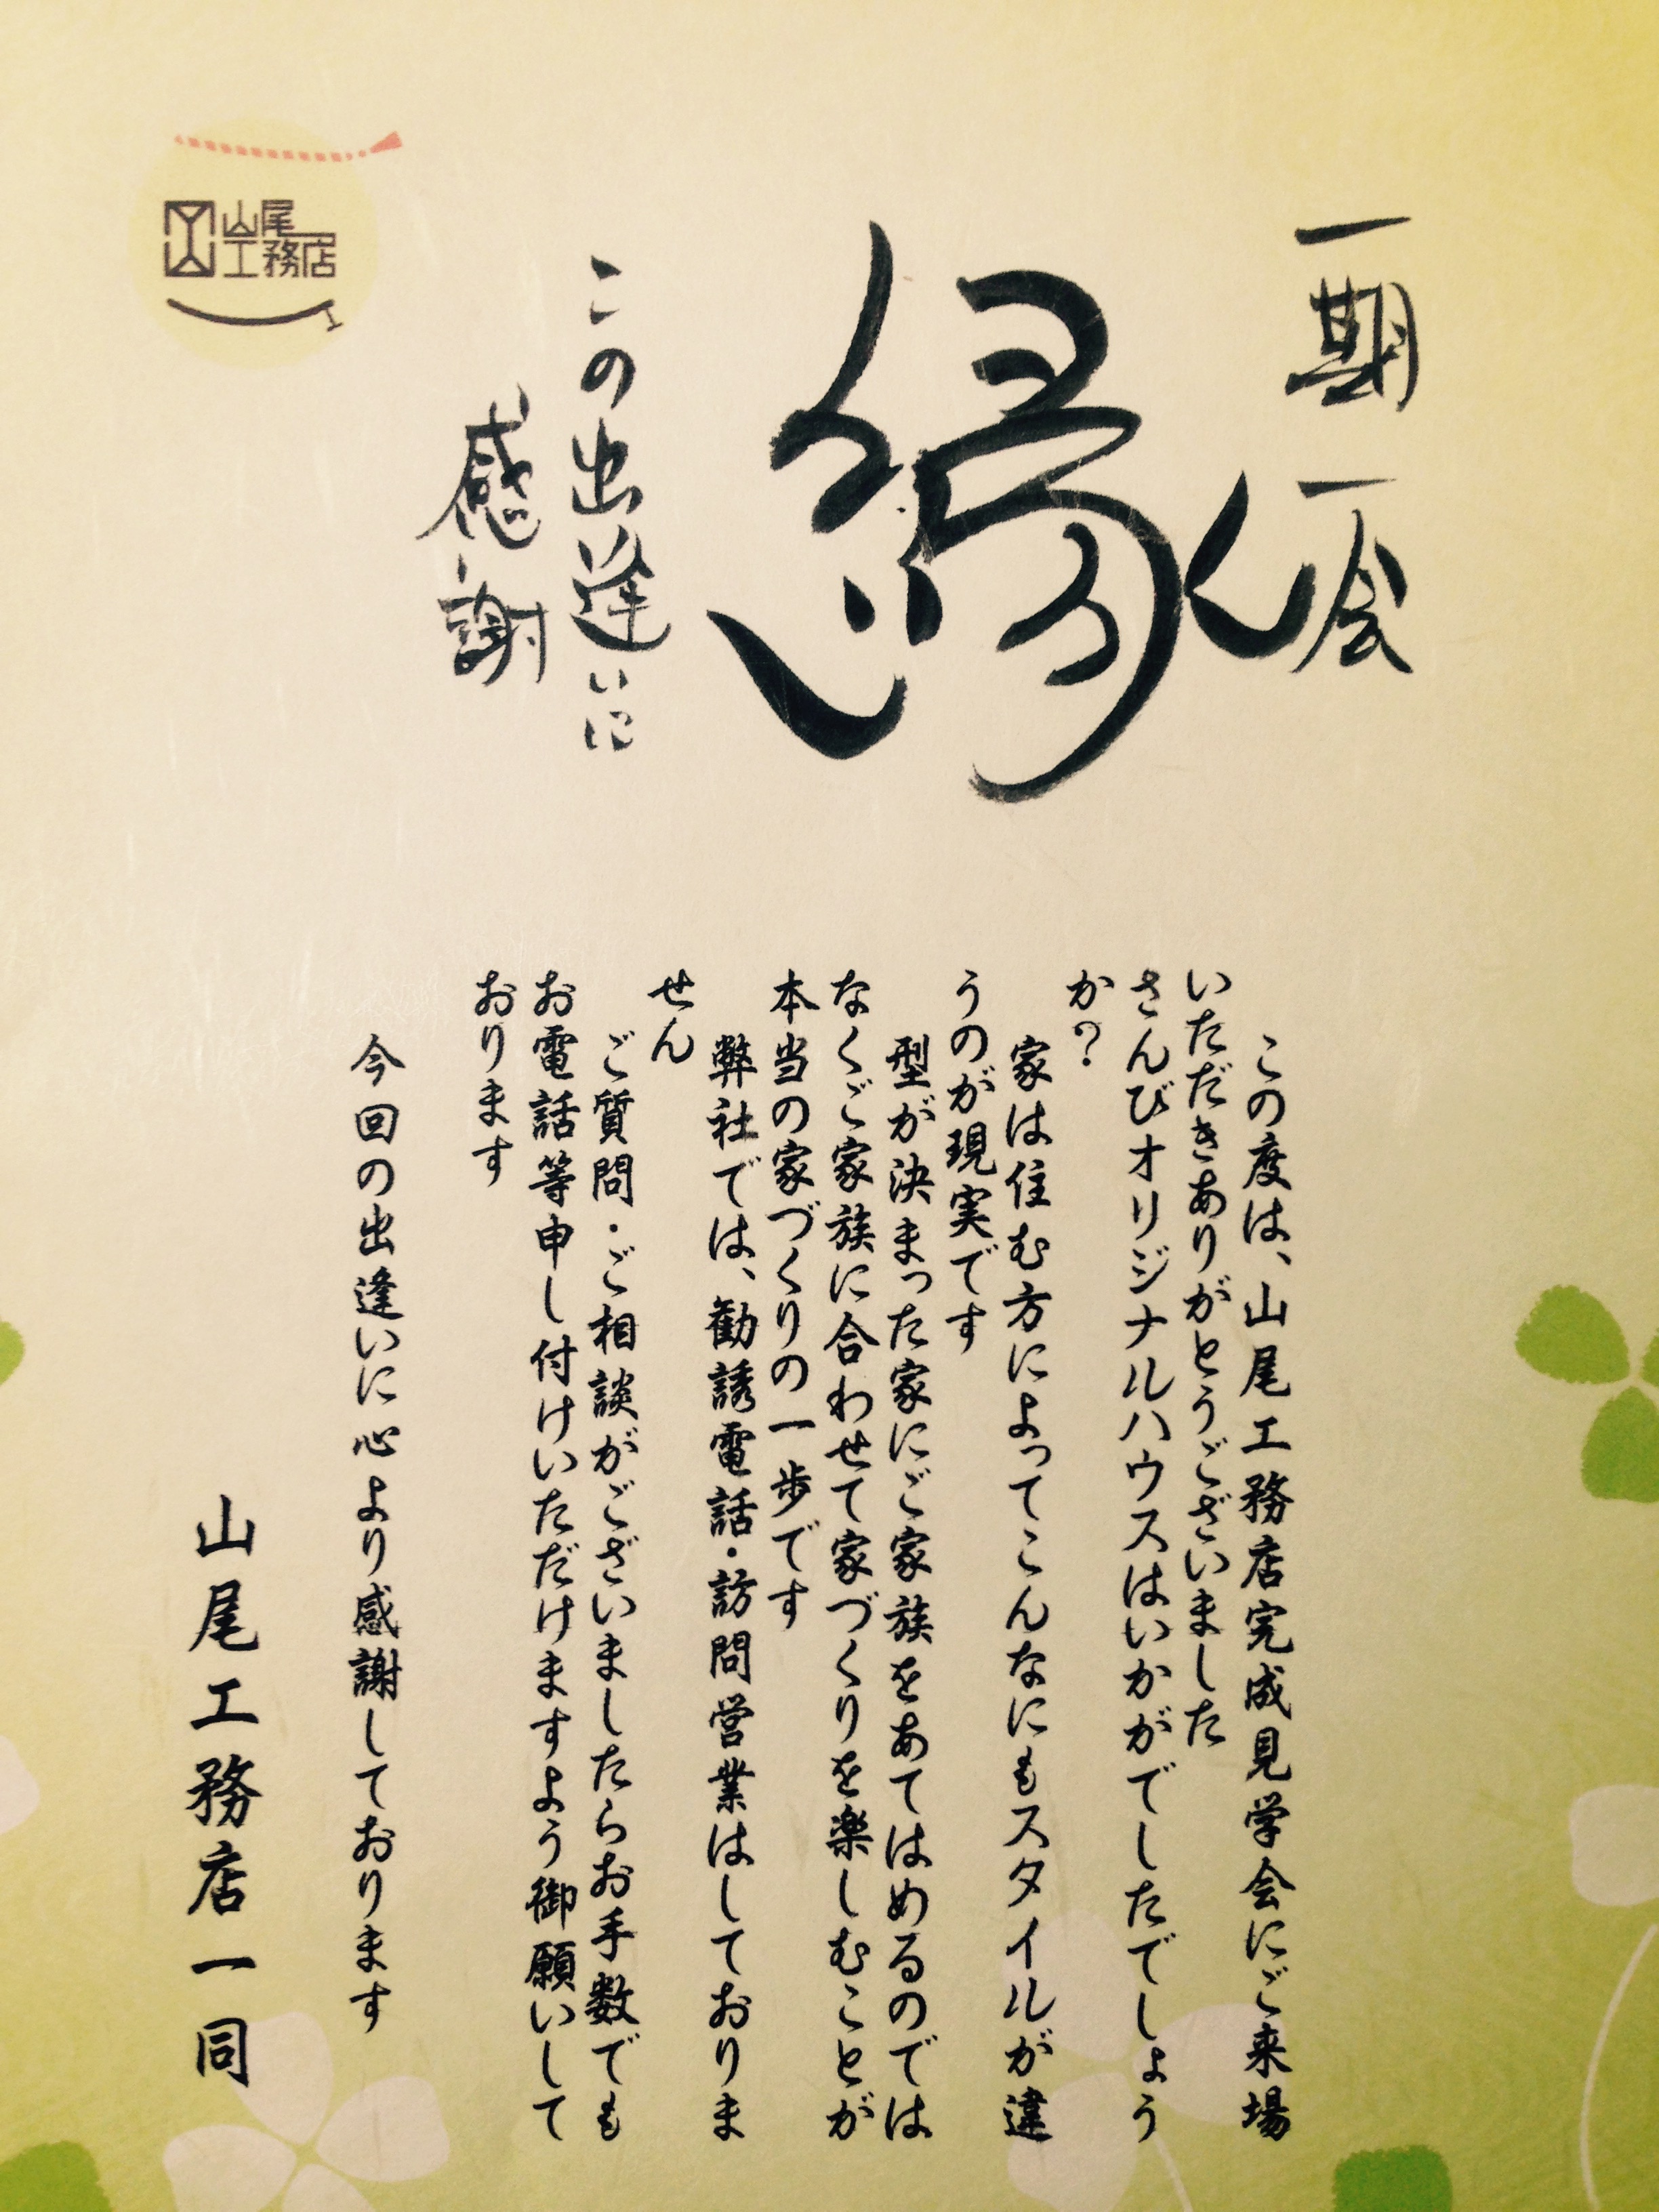 一期一会
縁
この出逢いに
感謝
山尾
工務店
この度は、山尾工務店完成見学会にご来場
いただきありがとうございました
さんびオリジナルハウスはいかがでしたでしょう
か?
家は住む方によってこんなにもスタイルが違
うのが現実です
型が決まった家にご家族をあてはめるのでは
なくご家族に合わせて家づくりを楽しむことが
本当の家づくりの一歩です
弊社では、勧誘電話・訪問営業はしておりま
せん
ご質問・ご相談がございましたらお手数でも
お電話等申し付けいただけますよう御願いして
おります
今回の出逢いに心より感謝しております
山尾工務店一同